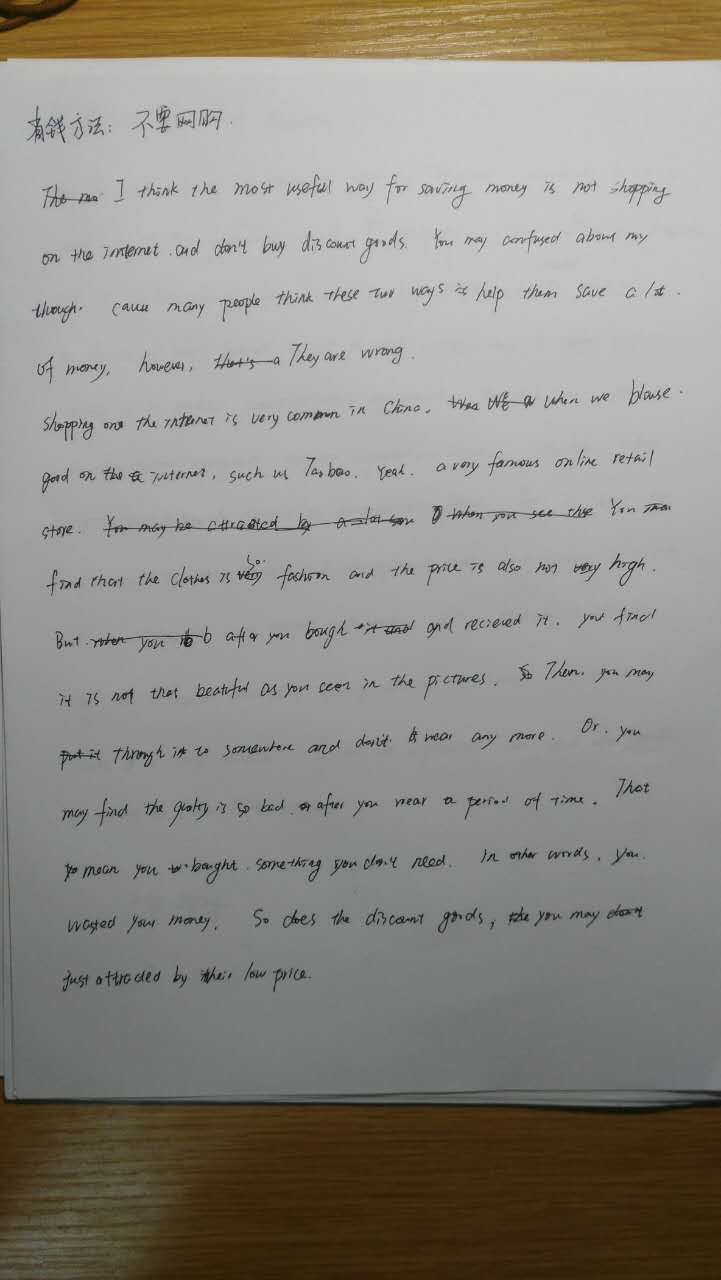 省钱方法: 不要网购.
I think the most useful way for saving money is not shopping
on the internet and don't buy discount goods. You may confused about my
though. cause many people think these two ways is help them save a lot.
of money, however, They are wrong.
shopping one the internet is very common in China. when we blouse.
good on the internet, such us Taobao. Yeah. a very famous online retail
store. You
find that the clothes is so fashion and the price is also not high.
But after you bough and recieved it, you find
it is not that beatiful as you seen in the pictures. Then, you may
through it to somewhere and don't wear any more. Or, you
may find the quaty is so bad after you wear a period of time. That
mean you bought something you don't need. in other words, you
wasted your money. So does the discount goods, you may
just attraded by their low price.